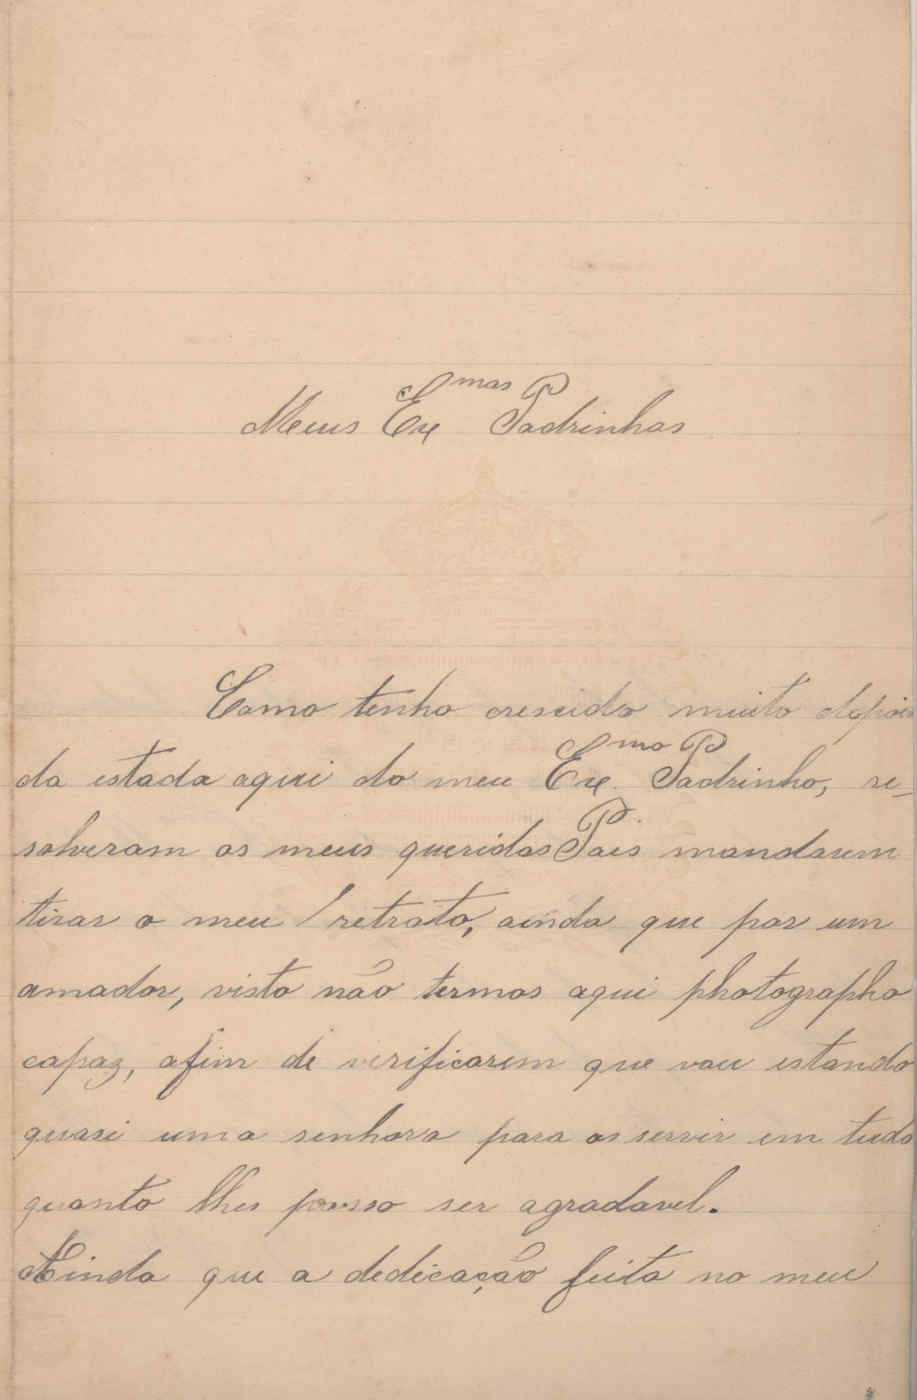 Meus Ex.mos Padrinhos
Como tenho crescido muito depois
da estada aqui do meu Ex.mo Padrinho, re-
solveram os meus queridos Paes mandarem
tirar o meu retrato, ainda que por um
amador, visto não termos aqui photographo
capaz, afim de verificarem que vou estando
quasi uma senhora para os servir em tudo
quanto lhes posso ser agradavel.
Ainda que a dedicação feita no meu